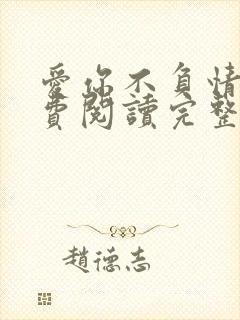 愛你不負情
費閱讀完整
趙德志